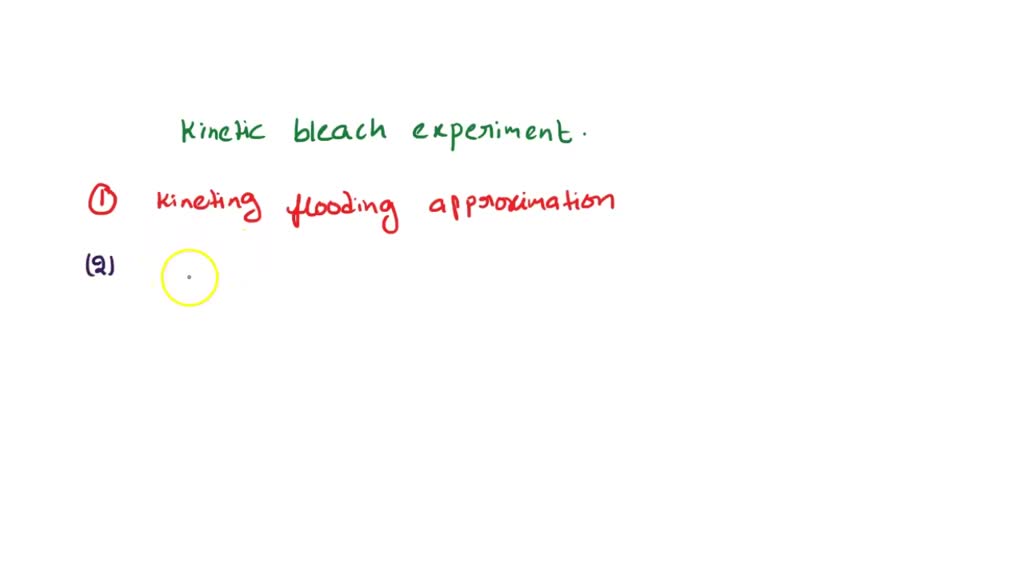 Kinetic bleach experiment.
① Kineting flooding approximation
(2)